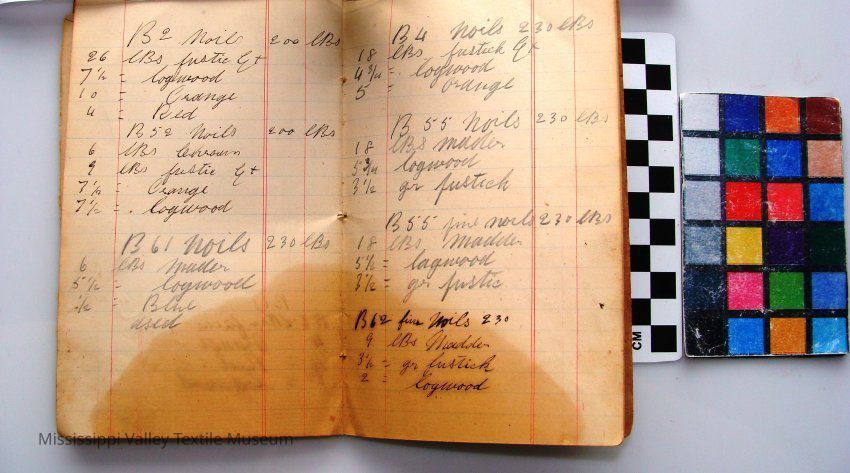 B2 Noils 200 lBs
26 lBs fustic Ext
7 1/2 = logwood
10 = Orange
4 = Red
B52 Noils 200 lBs
6 lBs
9 lBs fustic Ext
7 1/2 = Orange
7 1/2 = logwood
B61 Noils 230 lBs
6 lBs Mader
5 1/2 = logwood
1/2 = Blue
used
B4 Noils 230 lBs
18 lBs fustick Ext
4 3/4 = logwood
5 = orange
B 55 Noils 230 lBs
18 lBs madder
5 3/4 logwood
3 1/2 gr fustick
B55 fine noils 230 lBs
18 lBs, Madder
5 1/2 = lagwood
3 1/2 = gr fustic
B62 fine Noils 230
9 lBs Madder
3 1/2 = gr fustick
2 = logwood
CM
Mississippi Valley Textile Museum